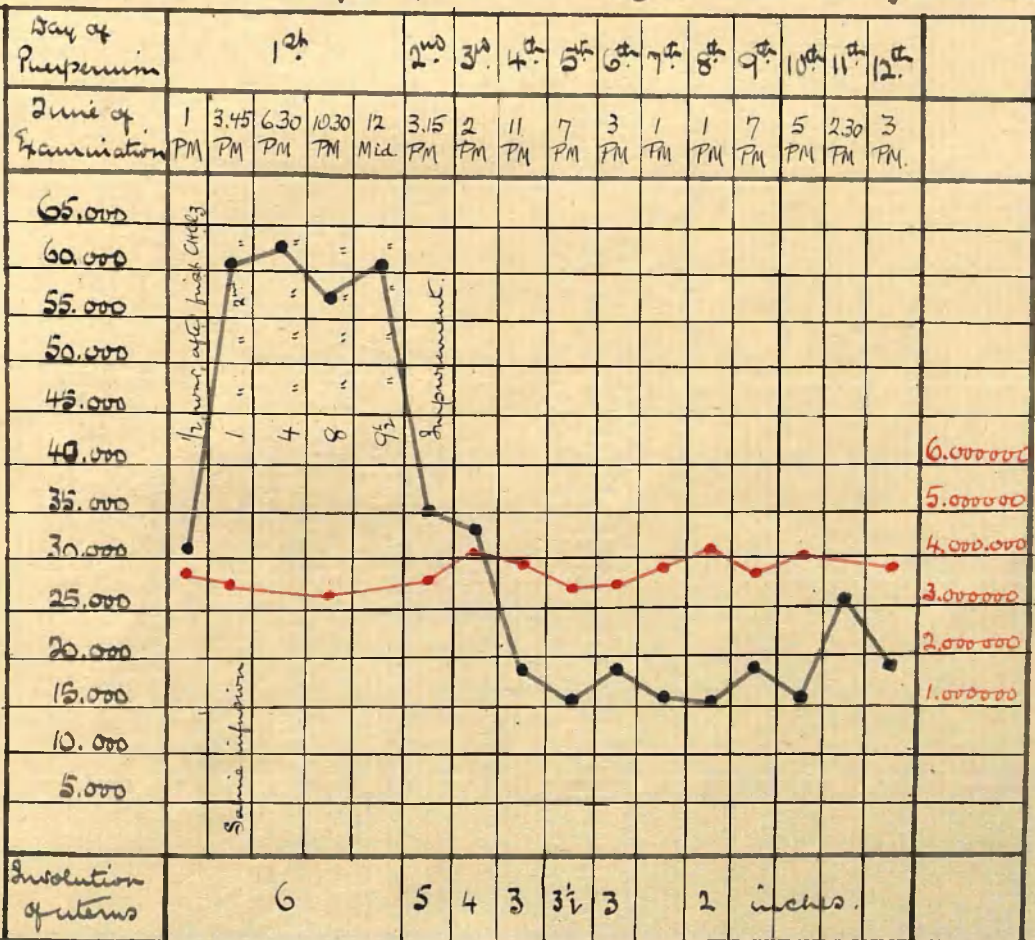 Day of
Puerperium
1st 2nd 3rd 4th 5th 6th 7th 8th 9th 10th 11th 12th
Time of
Examination
1 PM 3.45 PM 6.30 PM 10.30 PM 12 Mid 3.15 PM 2 PM 11 PM 7 PM 3 PM 1 PM 1 PM 7 PM 5 PM 2.30 PM 3 PM.
65.000
60.000
55.000
50.000
45.000
40.000
35.000
30.000
25.000
20.000
15.000
10.000
5.000
1/2 hour after first CHCl3
1 " " 2nd "
4 " " " "
8 " " " "
9½ " " " "
Improvement.
Saline infusion
6.000000
5.000000
4.000.000
3.000000
2.000000
1.000000
Involution
of uterus
6 5 4 3 3½ 3 2 inches.